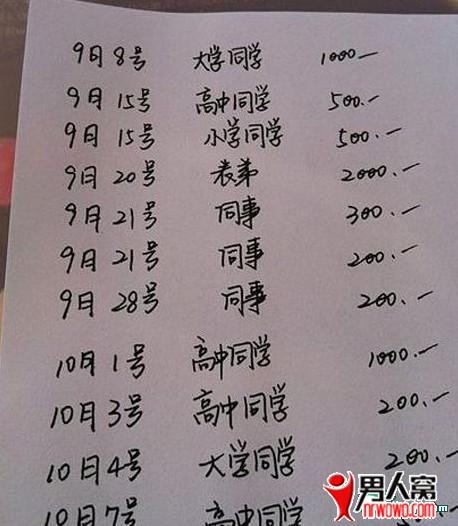 9月8号 大学同学 1000.—
9月15号 高中同学 500.—
9月15号 小学同学 500.—
9月20号 表弟 2000.—
9月21号 同事 300.—
9月21号 同事 200.—
9月28号 同事 200.—
10月1号 高中同学 1000.—
10月3号 高中同学 200.—
10月4号 大学同学 200.—
10月7号 高中同学
男人窝
nrwowo.com